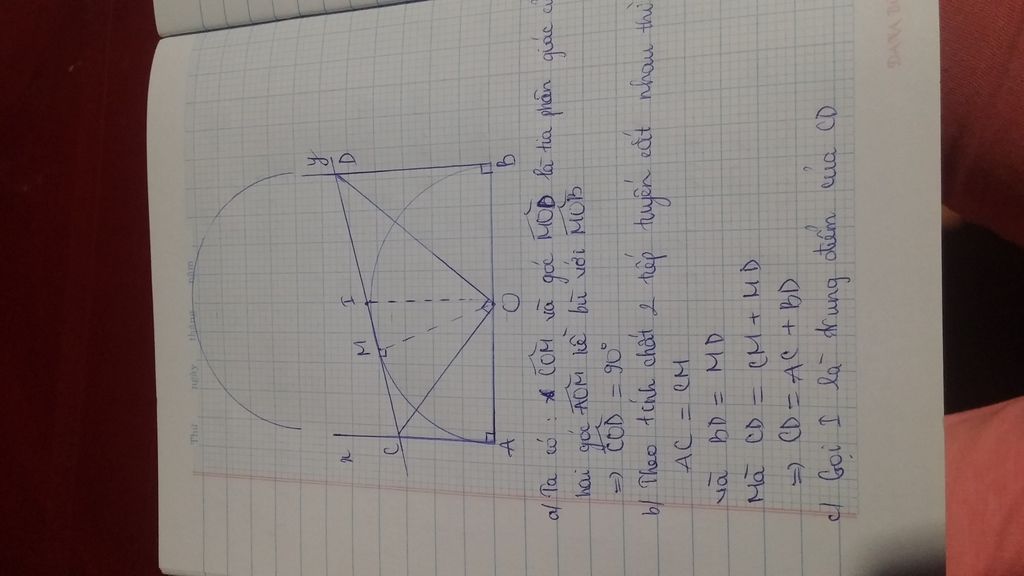 Thứ ngày tháng năm
x
y
C
M
I
D
A
O
B
a) Ta có: COM và góc MOD là tia phân giác
hai góc AOM kề bù với MOB
=) COD = 90°
b) Theo tính chất 2 tiếp tuyến cắt nhau thì
AC = CM
và BD = MD
Mà CD = CM + MD
=) CD = AC + BD
c) Gọi I là trung điểm của CD